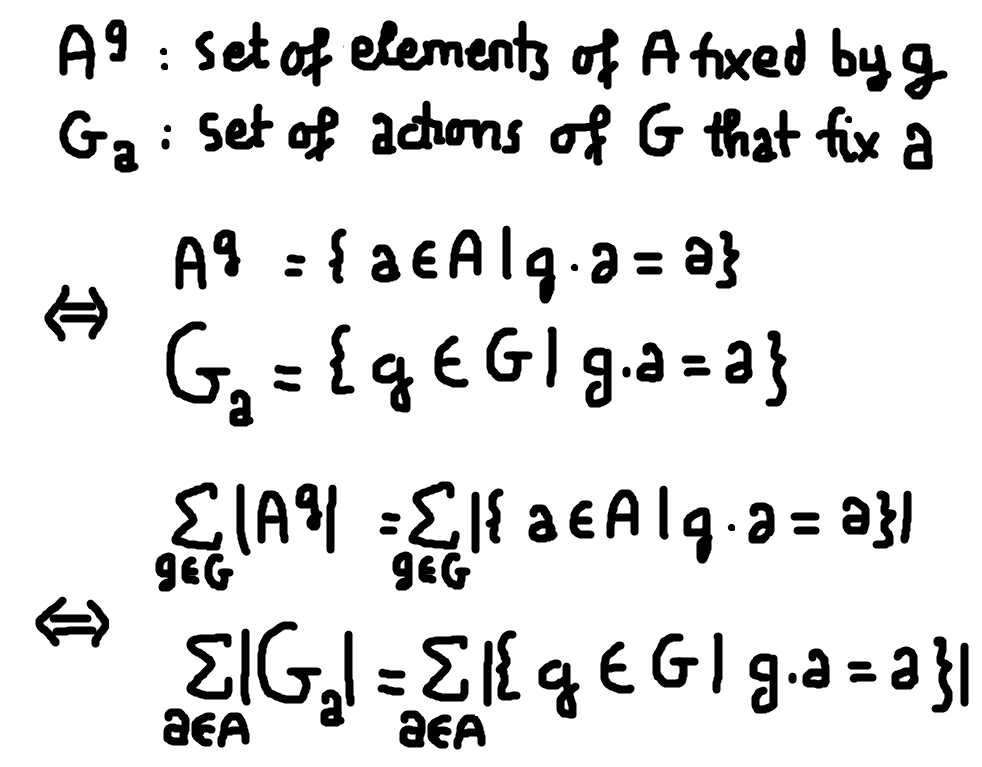 A^g : set of elements of A fixed by g
G_a : set of actions of G that fix a
A^g = { a ∈ A | g · a = a }
⇔
G_a = { g ∈ G | g · a = a }
∑_{g∈G} |A^g| = ∑_{g∈G} |{ a ∈ A | g · a = a }|
⇔
∑_{a∈A} |G_a| = ∑_{a∈A} |{ g ∈ G | g · a = a }|